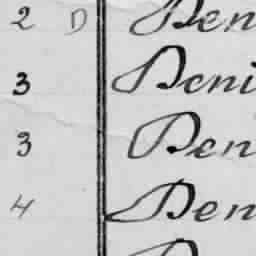 2 D Den
3 Deni
3 Den
4 Den